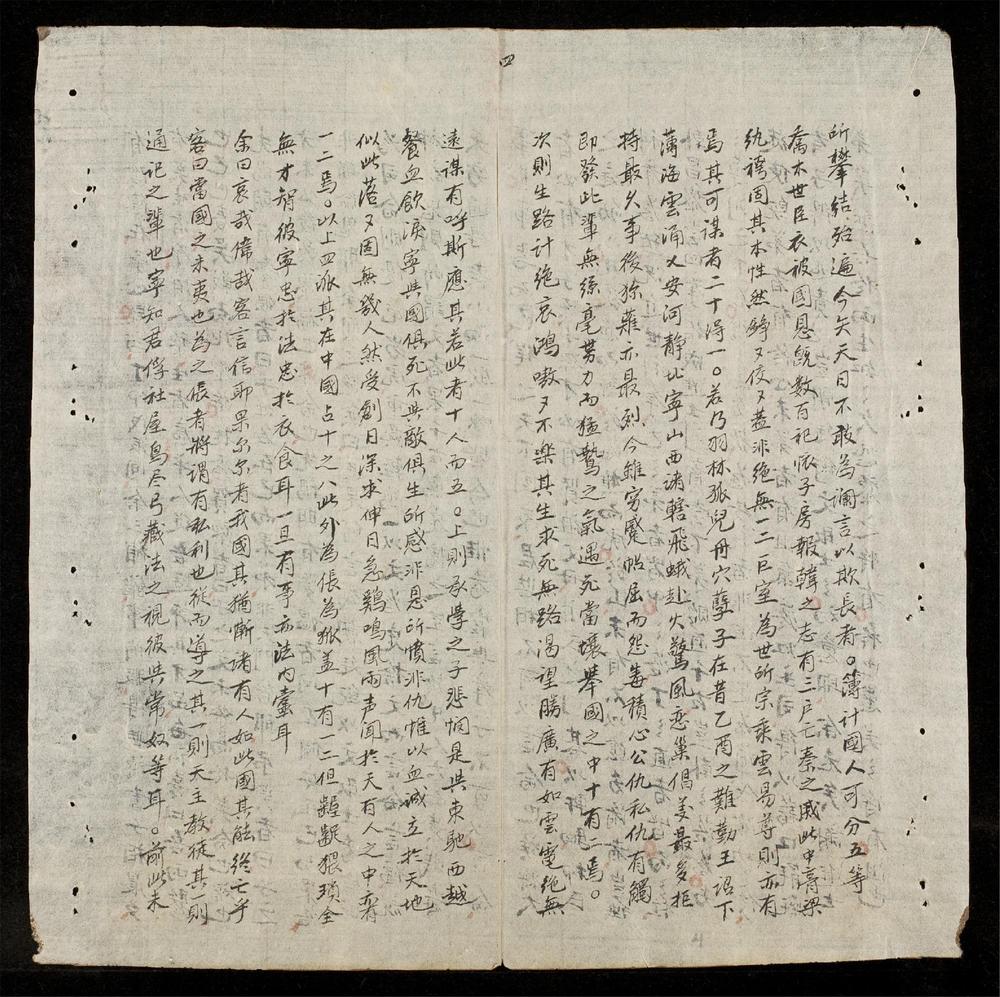 四
所攀結殆遍今矢天日不敢為讕言以欺長者。簿計國人可分五等
喬木世臣衣被國恩緜數百祀依子房報韓之志有三戶亡秦之感此中膏粱
紈袴固其本性然錚々佼々蓋非絕無一二巨室為世所宗乘雲易尊則亦有
焉其可謀者二十得一。若乃羽林孤兒冊穴孽子在昔乙酉之難勤王詔下
薄海雲涌乂安河静北寧山西諸轄飛蛾赴火驚風恋巢倡義最多拒
持最久事後殄薙亦最烈今雖窮蹙帖屈而怨毒積心公仇私仇有觸
即發此輩無絲毫勢力而猛鷙之氣遇死當壞舉國之中十有二焉。
次則生路計絕哀鴻嗷々不樂其生求死無路渴望勝廣有如雲霓絕無
遠謀有呼斯應其若此者十人而五。上則承學之子悲憫是共東馳西越
餐血飲淚寧與國俱死不與敵俱生所感非恩所憤非仇惟以血誠立於天地
似此落々固無幾人然受創日深求伸日急鷄鳴風雨声聞於天有人之中亦有
一二焉。以上四派其在中國占十之八此外為倀為狐盖十有一二但齷齪猥瑣全
無才智彼寧忠於法忠於衣食耳一旦有事亦法内蠹耳
余曰哀哉偉哉客言信耶果尔尔者我國其猶慚諸有人如此國其能終亡乎
客曰當國之未夷也為之倀者將謂有私利也從而導之其一則天主教徒其一則
通記之輩也寧知君俘社屋鳥尽弓藏法之視彼與常奴等耳。前此未
4